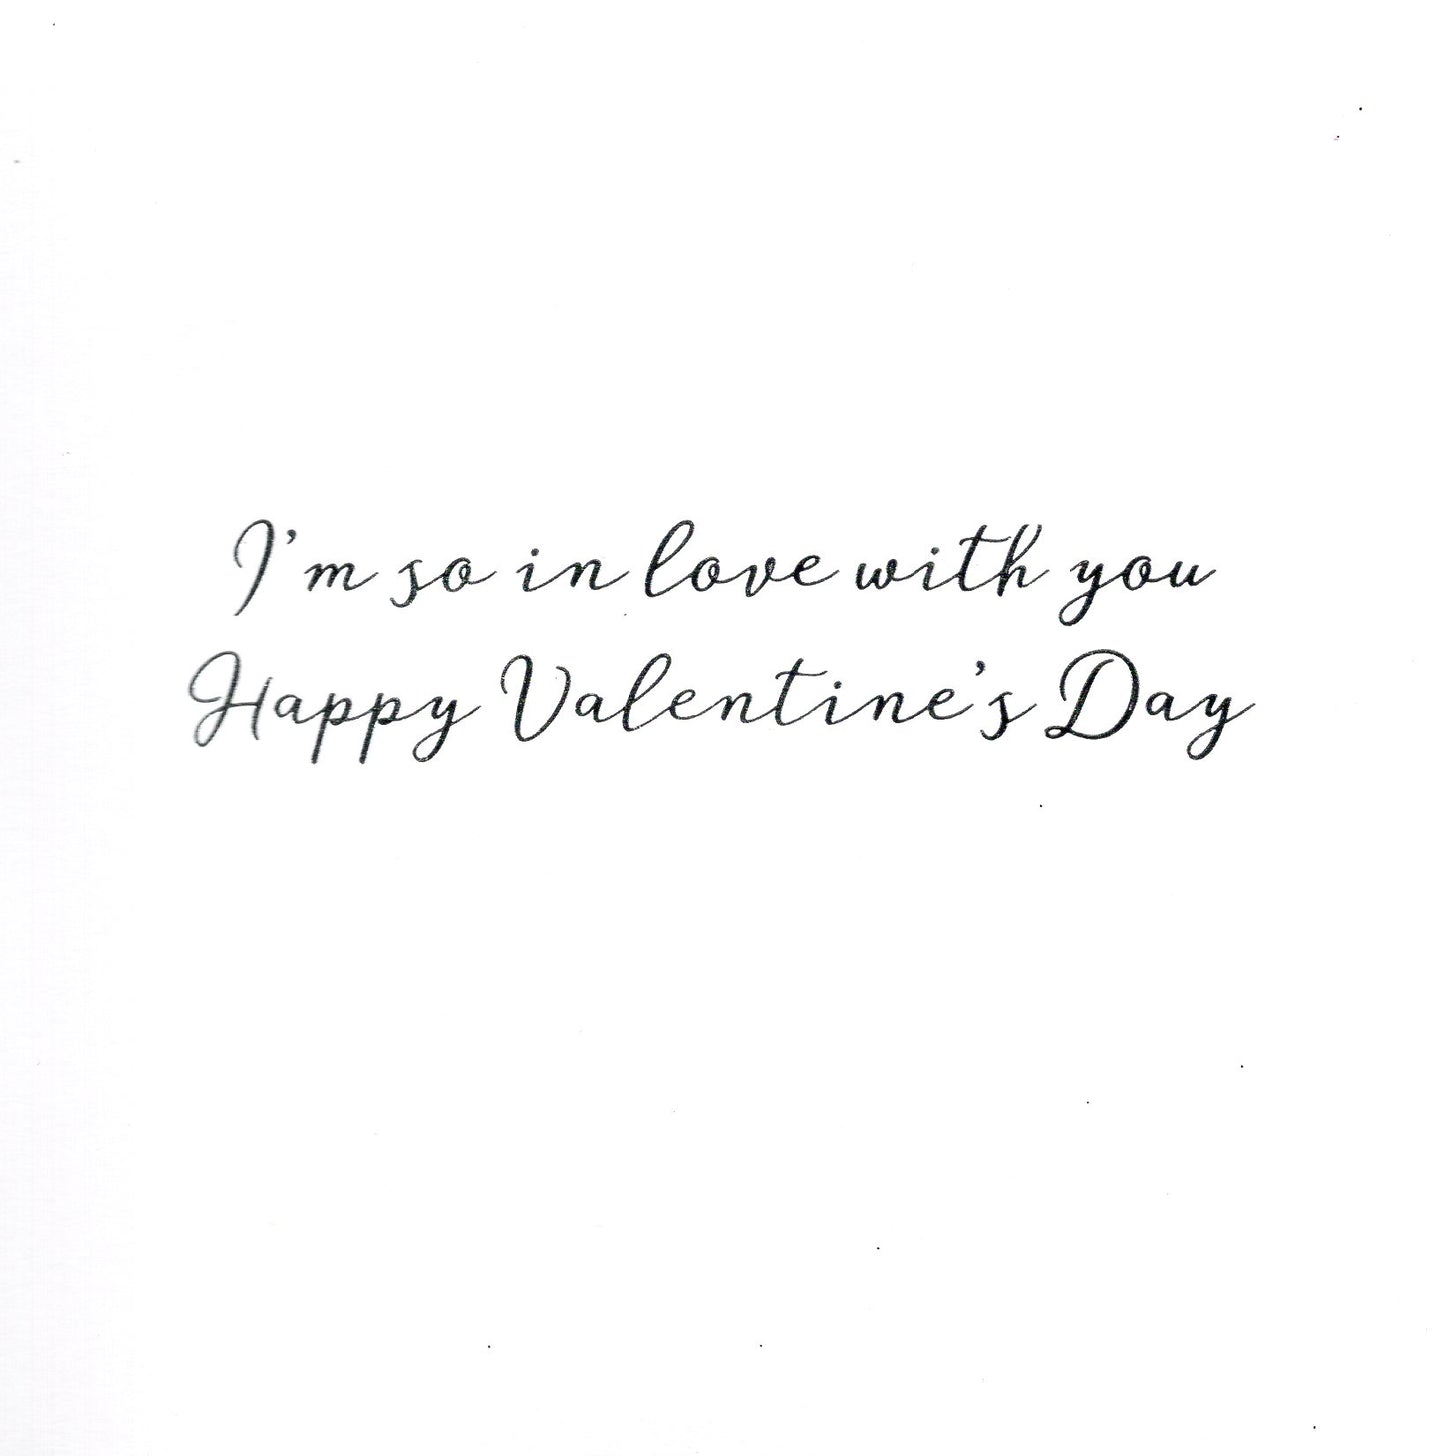 I'm so in love with you
Happy Valentine's Day